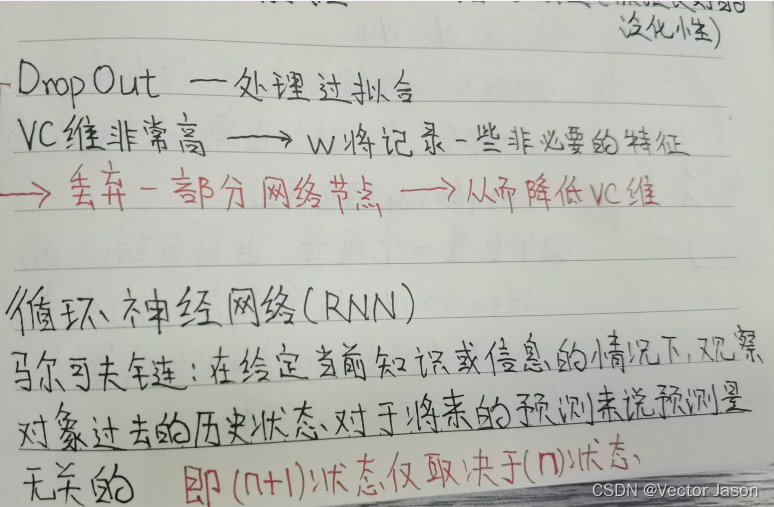 泛化性)
DropOut — 处理过拟合
VC维非常高 → W将记录一些非必要的特征
→ 丢弃一部分网络节点 → 从而降低VC维
循环神经网络(RNN)
马尔可夫链:在给定当前知识或信息的情况下,观察
对象过去的历史状态、对于将来的预测来说预测是
无关的 即(n+1)状态仅取决于(n)状态、
CSDN @Vector Jason